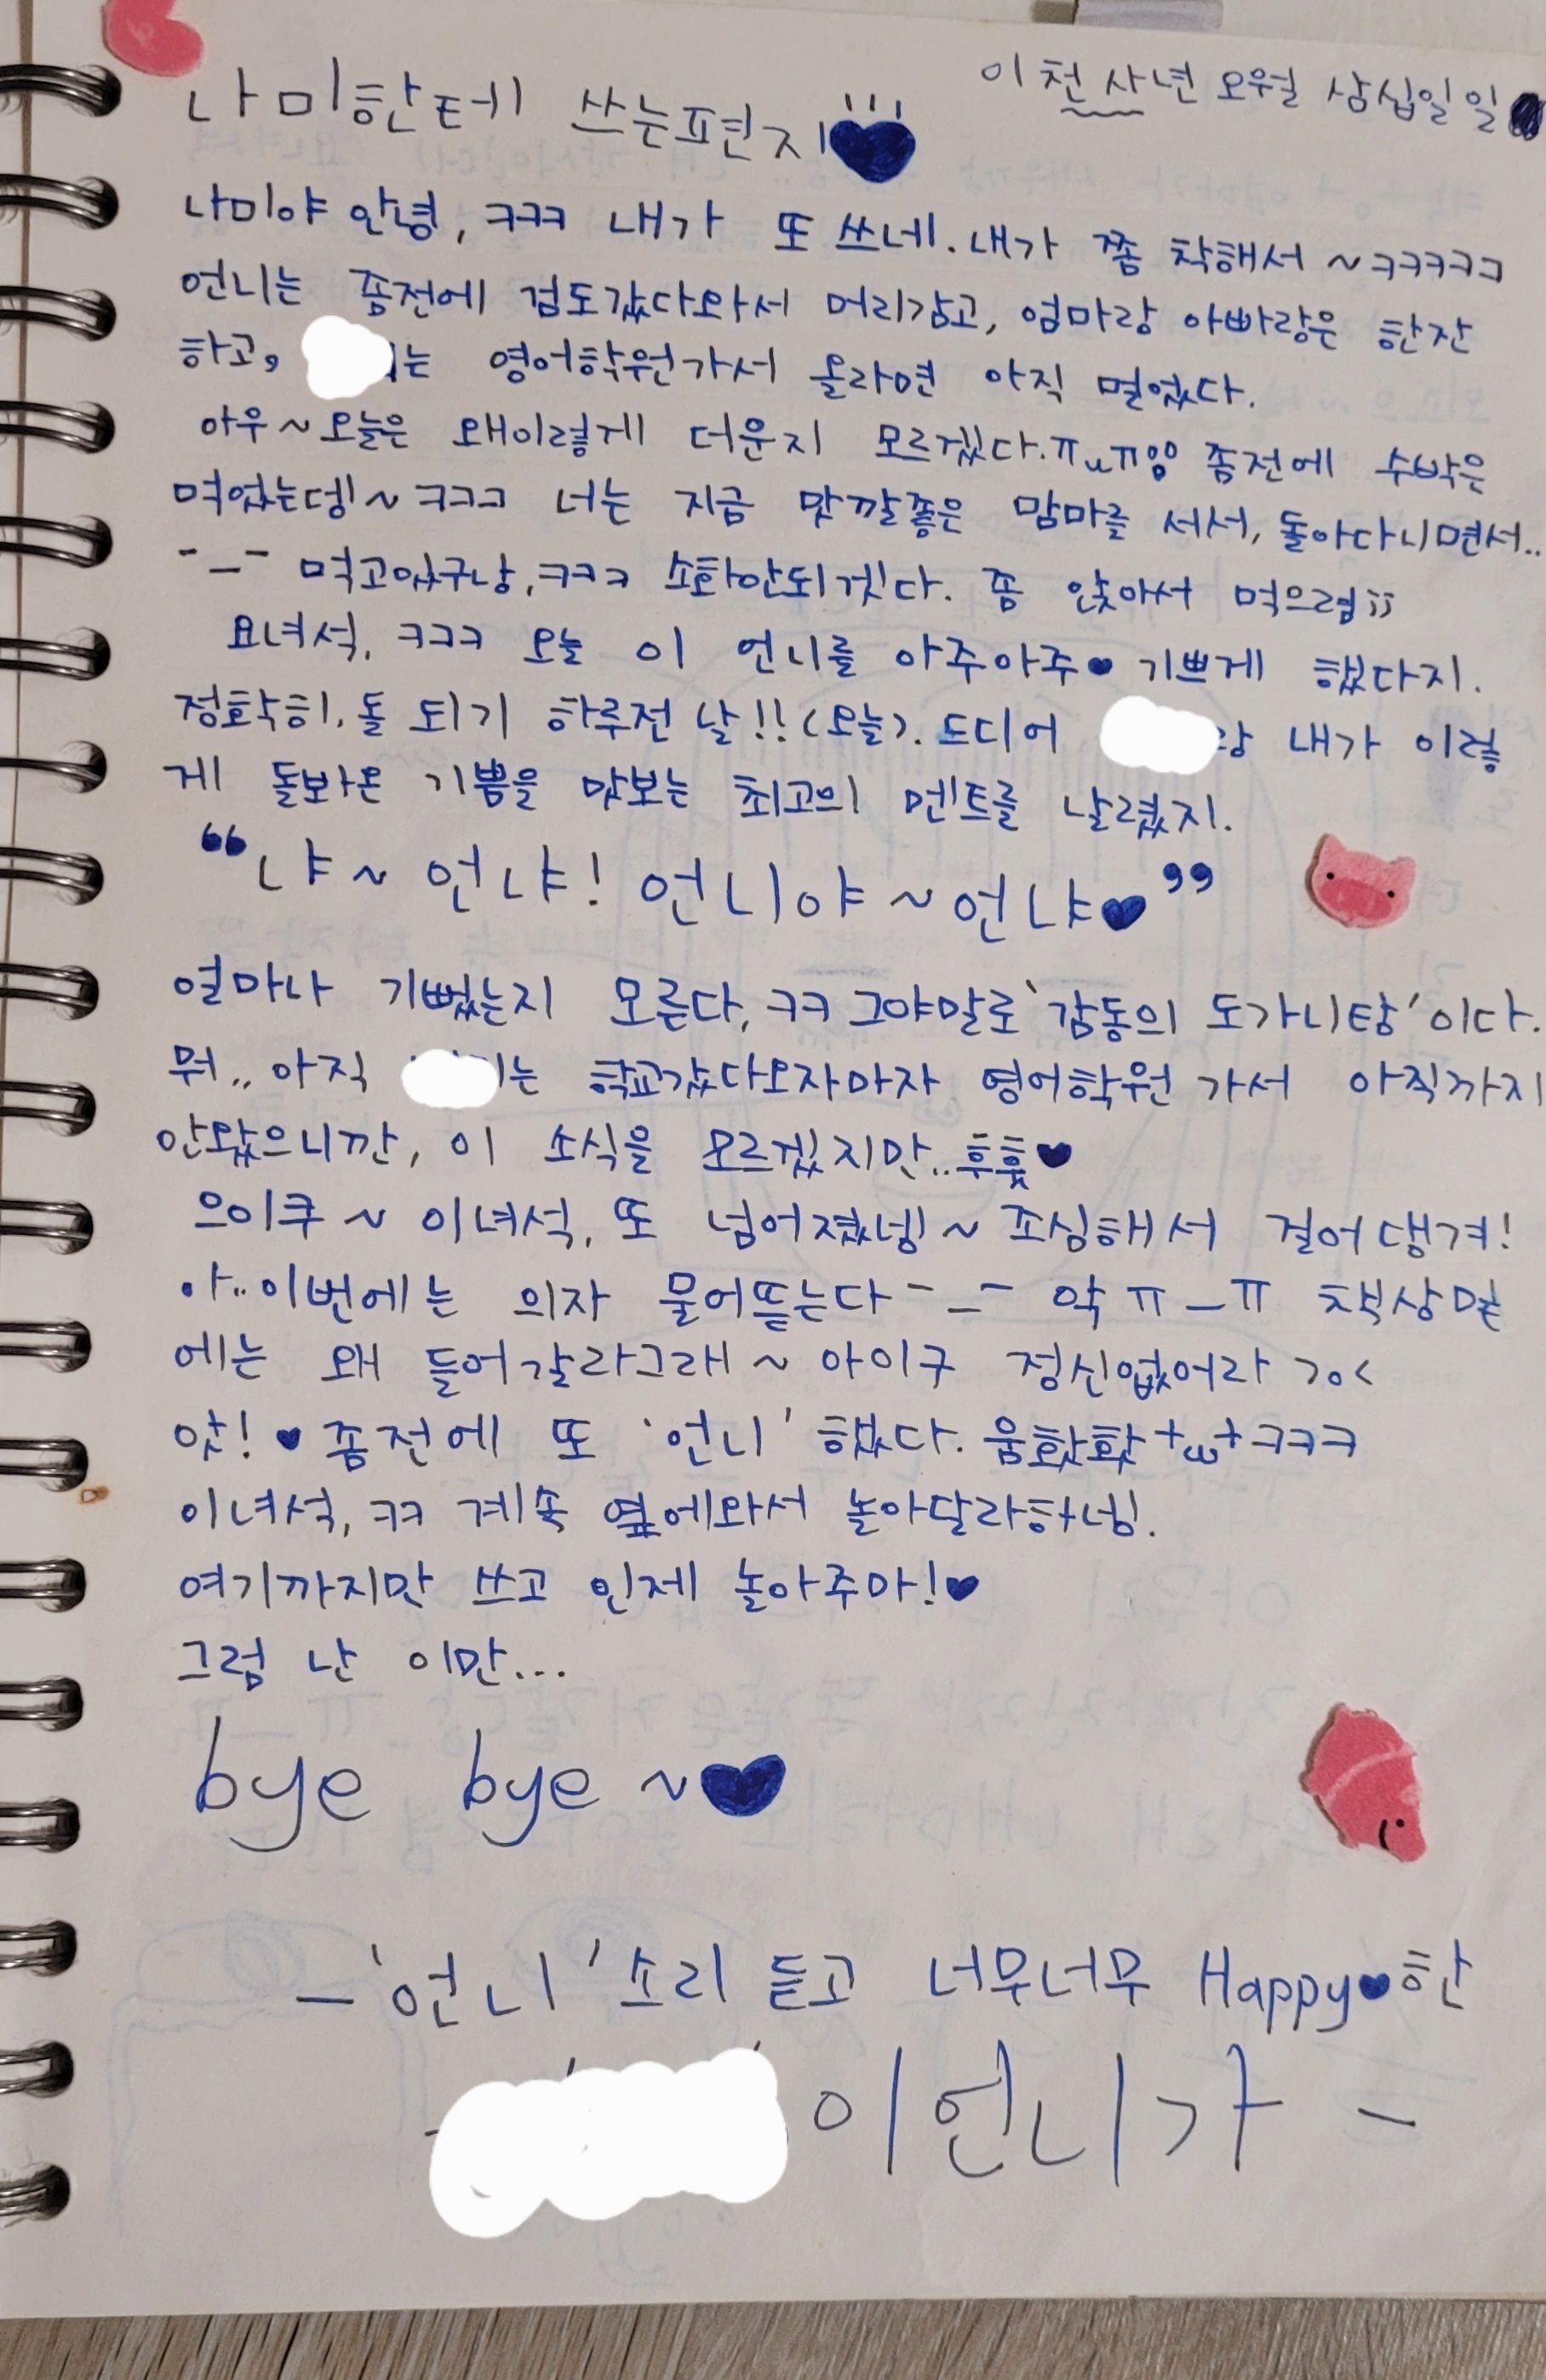 이천사년 오월 삼십일일
나미한테 쓰는편지♥
나미야 안녕, ㅋㅋㅋ 내가 또 쓰네. 내가 쫌 착해서 ~ㅋㅋㅋㅋㅋ
언니는 좀전에 검도갔다와서 머리감고, 엄마랑 아빠랑은 한잔
하고, 는 영어학원가서 올라면 아직 멀었다.
아우~오늘은 왜이렇게 더운지 모르겠다.ㅠㅛㅠ 좀전에 수박은
먹었는뎅~ㅋㅋㅋ 너는 지금 맛깔좋은 맘마를 서서, 돌아다니면서..
-_- 먹고있구낭,ㅋㅋㅋ 소화안되겟다. 좀 앉아서 먹으렴;;
요녀석, ㅋㅋㅋ 오늘 이 언니를 아주아주♥ 기쁘게 했다지.
정확히. 돌 되기 하루전 날!!(오늘). 드디어 랑 내가 이렇
게 돌봐온 기쁨을 맛보는 최고의 멘트를 날렸지.
“냐~ 언냐! 언니야~언냐♥”
얼마나 기뻤는지 모른다, ㅋㅋ 그야말로 '감동의 도가니탕'이다.
뭐.. 아직 는 학교갔다오자마자 영어학원 가서 아직까지
안왔으니깐, 이 소식을 모르겠지만..후훗♥
으이쿠~ 이녀석, 또 넘어졌넹~ 조심해서 걸어댕겨!
아..이번에는 의자 물어뜯는다 -_- 악 ㅠ_ㅠ 책상밑
에는 왜 들어갈라그래~ 아이구 정신없어라 >o<
앗!♥ 좀전에 또 '언니' 했다. 움홧홧+ω+ㅋㅋㅋ
이녀석, ㅋㅋ 계속 옆에와서 놀아달라하넹.
여기까지만 쓰고 인제 놀아주마!♥
그럼 난 이만...
bye bye ~♥
-'언니' 소리 듣고 너무너무 Happy♥한
이언니가 -